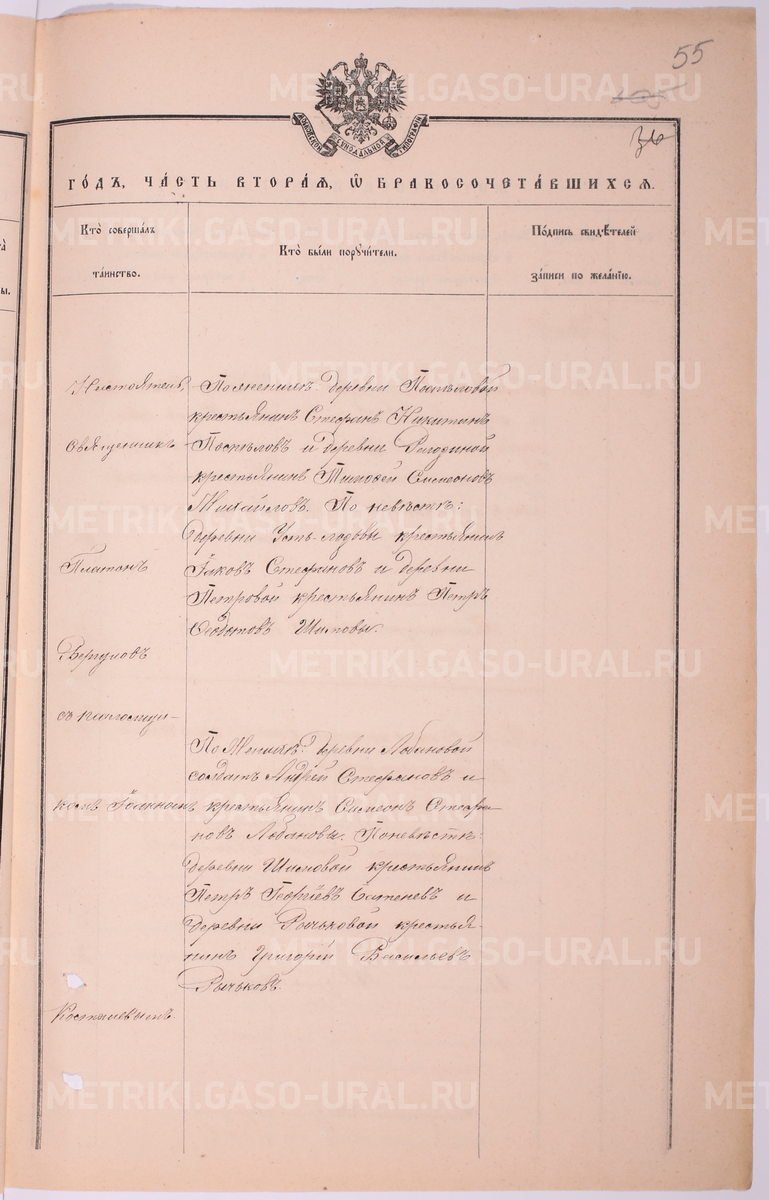 55
36
МОСКОВСКОЙ СѴНОДАЛЬНОЙ ТИПОГРАФІИ
ГО́ДЪ, ЧА́СТЬ ВТОРА́Я, Ѡ҆ БРАКОСОЧЕТА́ВШИХСЯ.
Кто̀ соверша́лъ
та́инство.
Кто̀ бы́ли порꙋчи́тели.
По́дпись свидѣ́телей
за́писи по жела́нїю.
Настоятель,
Священникъ
Платонъ
съ псаломщи-
комъ Іоанномъ
По женихѣ: деревни Поспѣловой
крестьянинъ Стефанъ Никитинъ
Поспѣловъ и деревни
крестьянинъ Тимофей Симеоновъ
Михайловъ. По невѣстѣ:
деревни Усть-Лодьвы крестьянинъ
Іаковъ Стефановъ и деревни
Петровой крестьянинъ Петръ
Ѳеодотовъ Шиловы.
По женихѣ: деревни Лобановой
солдатъ Андрей Стефановъ и
крестьянинъ Симеонъ Стефа-
новъ Лобановы. По невѣстѣ:
деревни Шиловой крестьянинъ
Петръ Георгіевъ и
деревни Рычьковой крестья-
нинъ Григорій Васильевъ
Рычьковъ
METRIKI.GASO-URAL.RU